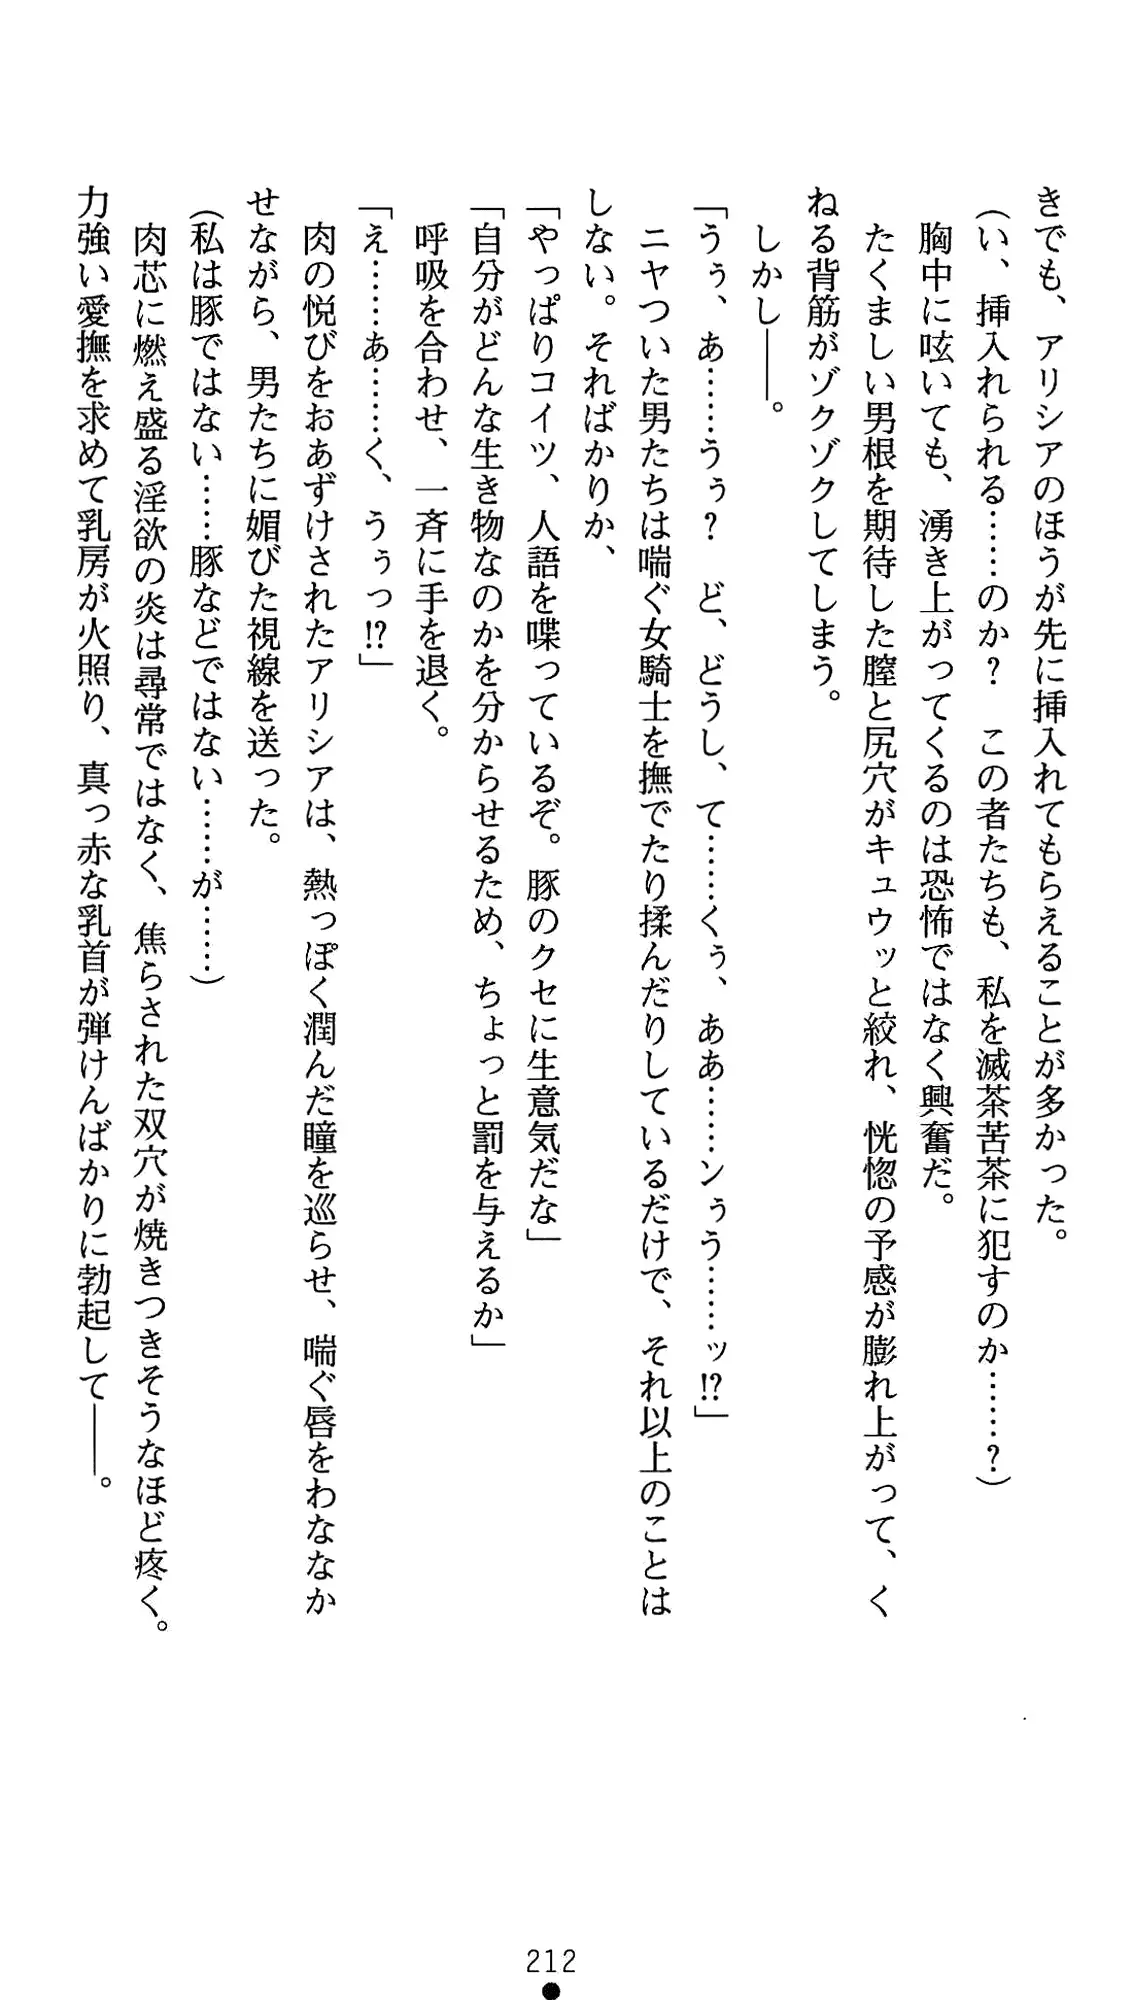 きでも、アリシアのほうが先に挿入れてもらえることが多かった。
（い、挿入れられる……のか？　この者たちも、私を滅茶苦茶に犯すのか……？）
　胸中に呟いても、湧き上がってくるのは恐怖ではなく興奮だ。
　たくましい男根を期待した膣と尻穴がキュウッと絞れ、恍惚の予感が膨れ上がって、く
ねる背筋がゾクゾクしてしまう。
　しかし――。
「うぅ、あ……うぅ？　ど、どうし、て……くぅ、ああ……ンぅう……ッ!?」
　ニヤついた男たちは喘ぐ女騎士を撫でたり揉んだりしているだけで、それ以上のことは
しない。そればかりか、
「やっぱりコイツ、人語を喋っているぞ。豚のクセに生意気だな」
「自分がどんな生き物なのかを分からせるため、ちょっと罰を与えるか」
　呼吸を合わせ、一斉に手を退く。
「え……あ……く、うぅっ!?」
　肉の悦びをおあずけされたアリシアは、熱っぽく潤んだ瞳を巡らせ、喘ぐ唇をわななか
せながら、男たちに媚びた視線を送った。
（私は豚ではない……豚などではない……が……）
　肉芯に燃え盛る淫欲の炎は尋常ではなく、焦らされた双穴が焼きつきそうなほど疼く。
力強い愛撫を求めて乳房が火照り、真っ赤な乳首が弾けんばかりに勃起して――。
212